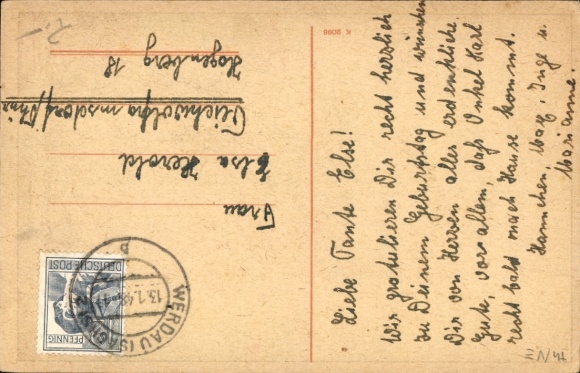 Liebe Tante Else!
Wir gratulieren Dir recht herzlich
zu Deinem Geburtstag und wünschen
Dir von Herzen alles erdenkliche
Gute, vor allem, daß Onkel Karl
recht bald nach Hause kommt.
Hannchen, Inge u.
Marianne.
Frau
Elsa Herold
Teichwolframsdorf/Thür.
Hogenberg 18
K 2095
DEUTSCHE POST
PFENNIG
WERDAU (SACHS)
b